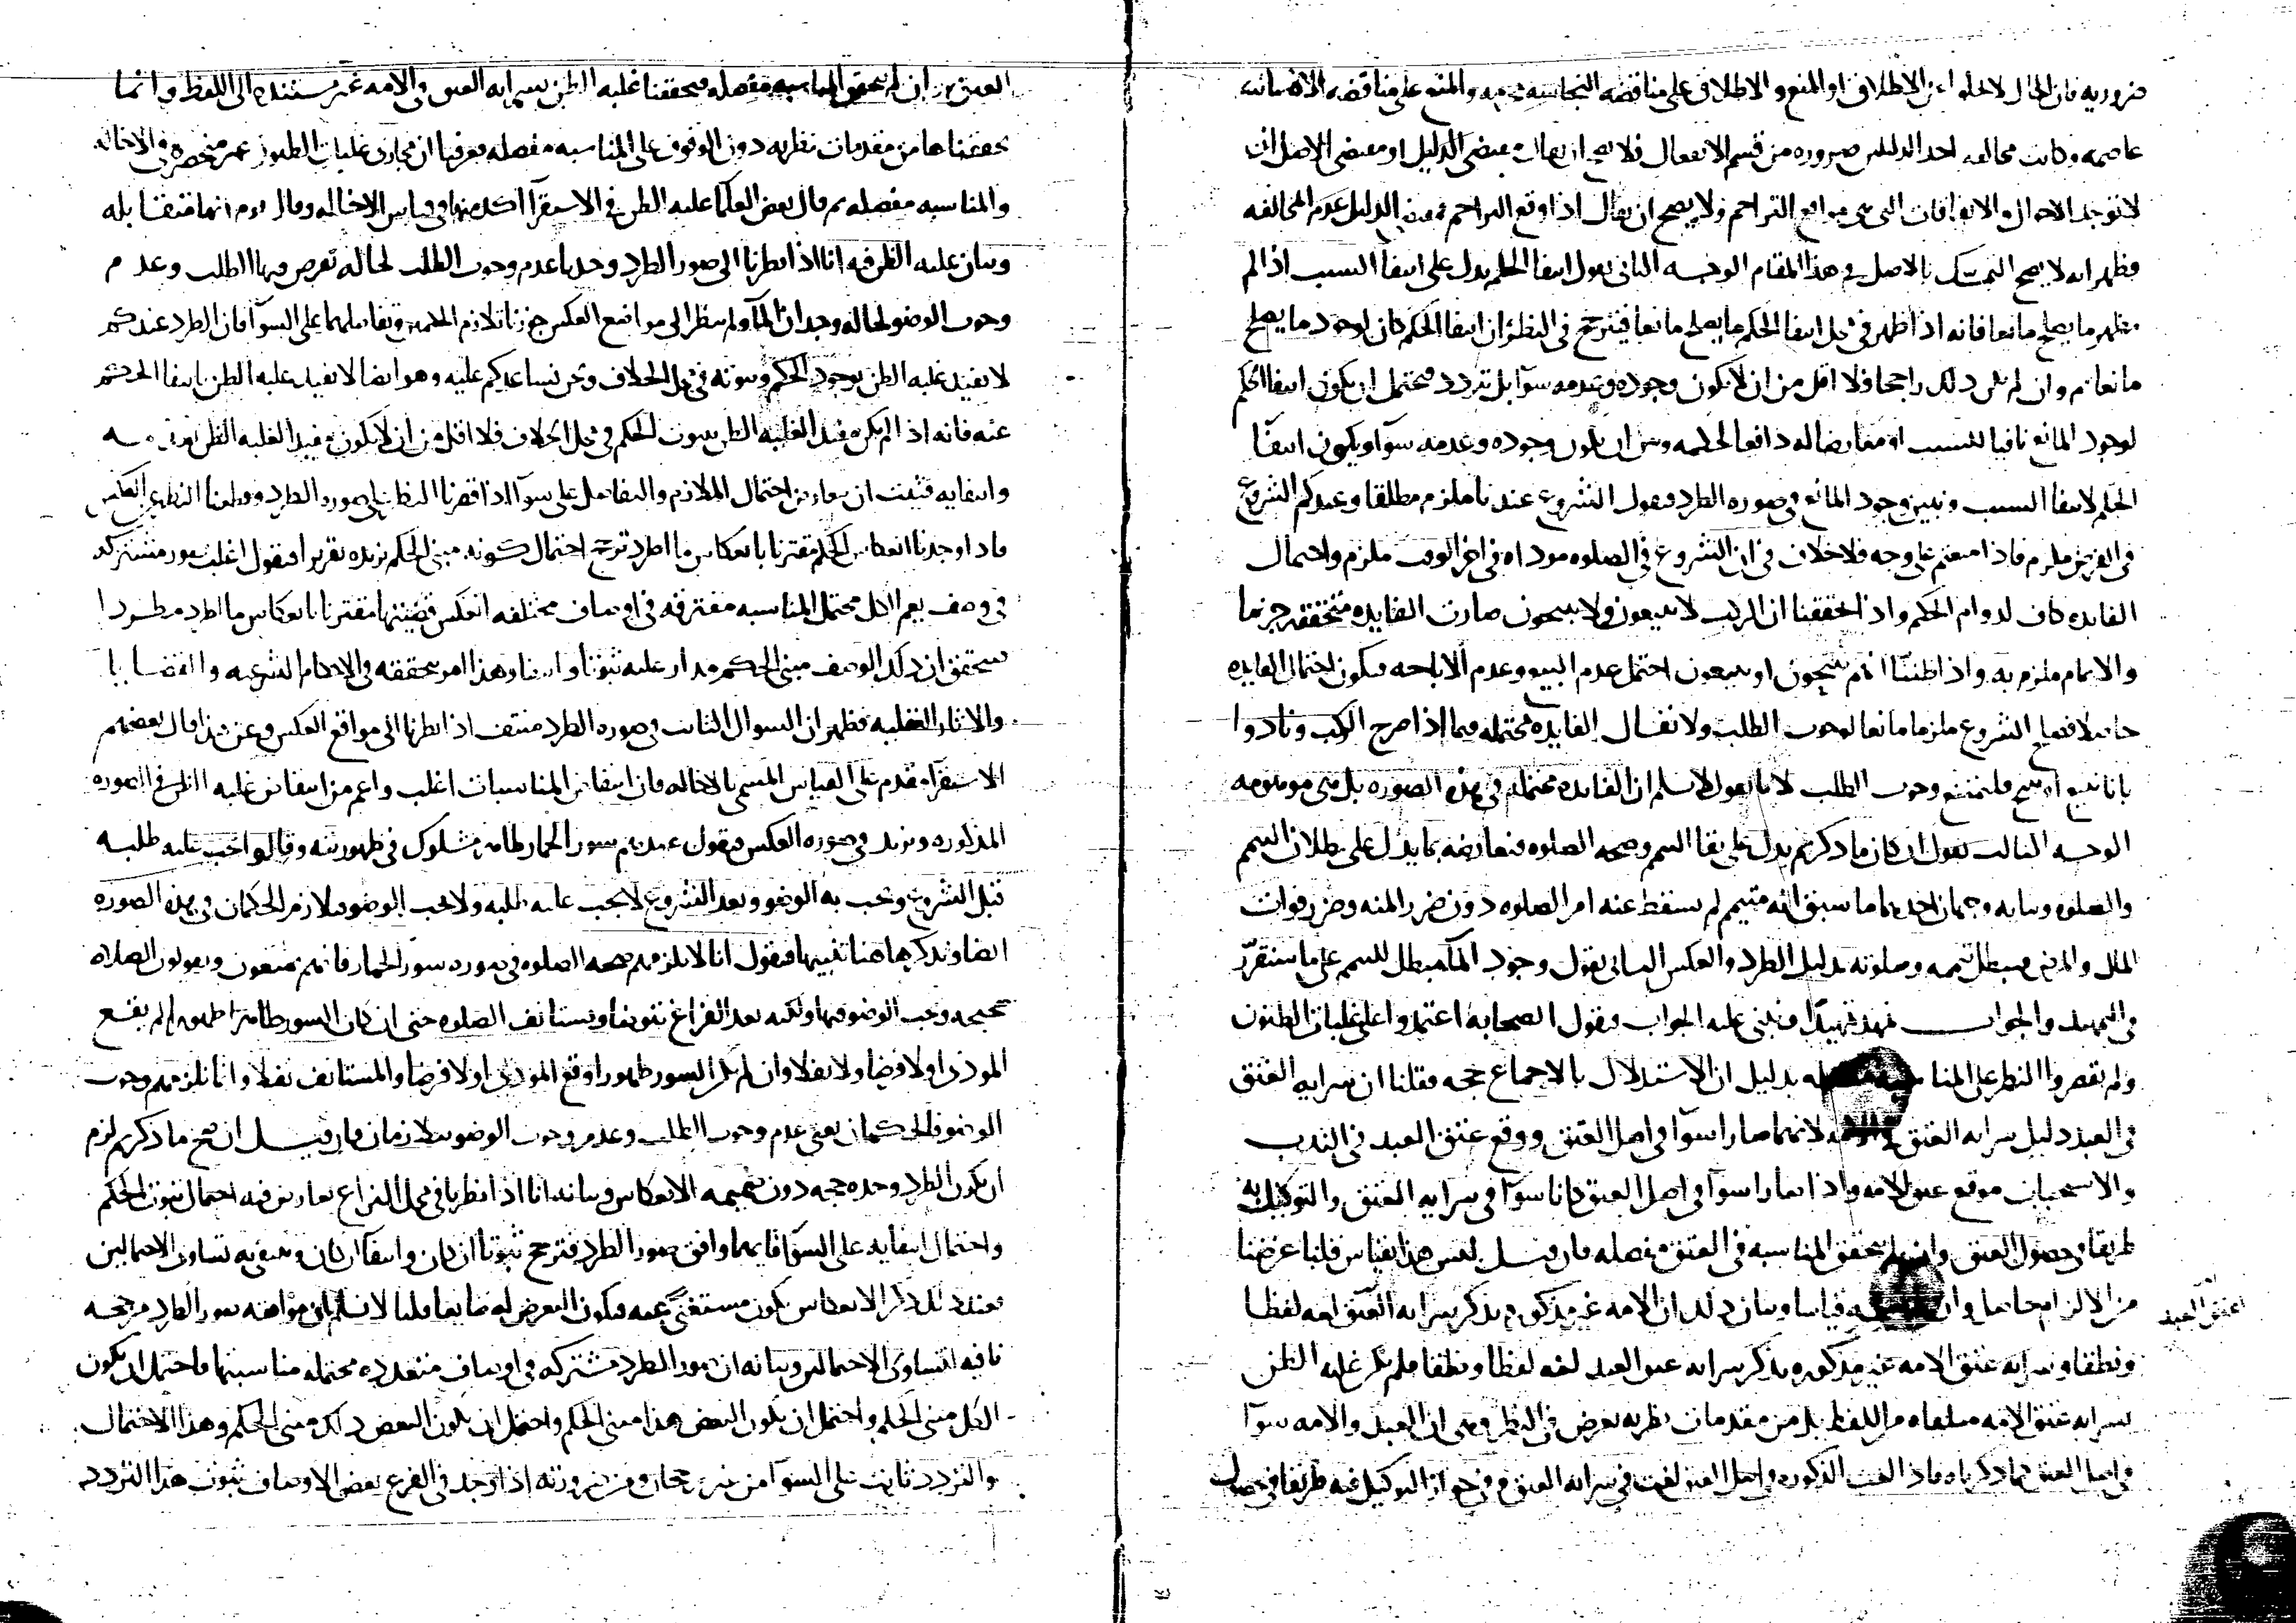 ضروريه فان الحال لا تخلوا عن الاطلاق او المنع والاطلاق على مناقضه النجاسه والمنع على مناقضه
عاصمه وكانت مخالفه احد الدليلين ضروره من قسم الافعال فلا يصح ان يقال مقتضى الدليل او مقتضى الاصل ان
لا توجد الاحوال والاتفاقات التي هي مواقع التزاحم ولا يصح ان يقال اذا وقع التزاحم الدليل عدم المخالفه
فظهر انه لا يصح التمسك بالاصل في هذا المقام الوجه الثاني نقول انتفا الحكم يدل على انتفا السبب اذا لم
يظهر ما يصلح مانعا فانه اذا ظهر في محل انتفا الحكم ما يصلح مانعا فيترجح في النظر ان انتفا الحكم كان لوجود ما يصلح
مانعا ثم وان لم يكن ذلك راجحا فلا اقل من ان لا يكون وجوده وعدمه سوآ بل تردد محتمل ان يكون انتفا الحكم
لوجود المانع نافيا للسبب او معارضا له دافعا لحكمه وبين ان يكون وجوده وعدمه سوآ ويكون انتفآ
الحكم لانتفا السبب ونبين وجود المانع في صوره الطرد فنقول الشروع عندنا ملزم مطلقا وعندكم الشروع
في الفرض ملزم فاذا منعتم على وجه فلا خلاف في ان الشروع في الصلوه موداه في اخر الوقت ملزم واحتمال
الفايده كاف لدوام الحكم واذا تحققنا ان الركب لا يبيعون ولا يبيحون صارت الفايده متحققه جزما
والاتمام ملزم به واذا ظننا انهم يبيحون او يبيعون احتمل عدم البيع وعدم الاباحه فيكون احتمال الفايده
حاصلا فيصلح الشروع ملزما مانعا لوجوب الطلب ولا نقال الفايده محتمله فيما اذا صرح الركب ونادوا
بانا نبيع او نبيح فليمتنع وجوب الطلب لانا نقول لا نسلم ان الفايده محتمله في هذه الصوره بل هي موهومه
الوجه الثالث نقول ان كان ما ذكرتم يدل على بقا التيمم وصحه الصلوه فنعارضه بما يدل على بطلان التيمم
والصلوه وبيانه وجهان احدهما ما سبق انه متيمم لم يسقط عنه امر الصلوه دون ضرر المنه وضرر فوات
المال والمرض فيبطل تيممه وصلوته بدليل الطرد والعكس الثاني نقول وجود المآ مبطل للتيمم على ما سنقرر
في التمهيد والجواب نمهد تمهيدا ونبني عليه الجواب فنقول الصحابه اعتمدوا على غلبات الظنون
ولم يقصروا النظر على المناسبه مفصله بدليل ان الاستدلال بالاجماع حجه فقلنا ان سرايه العتق
في العبد دليل سرايه العتق في الامه لانهما صارا سوآ في اصل العتق ووقع عتق العبد في الندب
والاستحباب موقع عتق الامه واذا صارا سوآ في اصل العتق كانا سوآ في سرايه العتق والتوكيل به
طريقا في حصول العتق وان لم تتحقق المناسبه في العتق مفصله فان قيل ليس هذا بقياس قلنا غرضنا
من الالزام حاصل وان قياسا وبيان ذلك ان الامه غير مذكوره بذكر سرايه العتق لغه لفظا
ونطقا وسرايه عتق الامه غير مذكوره بذكر سرايه عتق العبد لغه لفظا ونطقا فلم تكن غلبه الظن
بسرايه عتق الامه متلقاه من اللفظ بل من مقدمات نظريه تعرض في النظر وهي ان العبد والامه سوآ
في اصل العتق كما ذكرناه في اصل العتق في سرايه العتق وفي جواز التوكيل فيه طريقا في حصول
اعتق العبد
العتق وان لم تتحقق المناسبه مفصله فتحققنا غلبه الظن بسرايه العتق في الامه غير مستنده الى اللفظ وانما
تحققناها من مقدمات نظريه دون الوقوف على المناسبه مفصله فعرفنا ان مجاري غلبات الظنون غير منحصره في الاخاله
والمناسبه مفصله ثم قال بعض العلمآ غلبه الظن في الاستقرآ اكد منها في قياس الاخاله وقال قوم انهما متقابله
وبيان غلبه الظن فيه انا اذا نظرنا الى صور الطرد وحدها عدم وجوب الطلب لحاله تعرض فيها الطلب وعدم
وجوب الوضو لحاله وجدان المآ ولم ننظر الى مواضع العكس جوزنا تلازم الحكمين وتقابلهما على السوآ فان الطرد عندكم
لا يفيد غلبه الظن بوجود الحكم وثبوته في محل الخلاف ونحن نساعدكم عليه وهو ايضا لا يفيد غلبه الظن بانتفا الحكم
عنه فانه اذا لم يكن مفيدا لغلبه الظن بثبوت الحكم في محل الخلاف فلا اقل من ان لا يكون مفيدا لغلبه الظن بعدمه
وانتفايه فثبت ان تعارض احتمال التلازم والتقابل على سوآ اذا قصرنا النظر على صوره الطرد وقطعنا النظر عن العكس
فاذا وجدنا انعكاس الحكم مقترنا بانعكاس ما اطرد ترجح احتمال كونه مبنى الحكم نزيده تقريرا فنقول اغلب صور مشتركه
في وصف يعم الكل محتمل المناسبه مفترقه في اوصاف مختلفه انعكس قضيتها مقترنا بانعكاس ما اطرد مطردا
يتحقق ان ذلك الوصف مبنى الحكم مدار عليه ثبوتا وانتفا وهذا امر تحققه في الاحكام الشرعيه والقضايا
والاثار العقليه فظهر ان السوال الثابت في صوره الطرد منتف اذا نظرنا الى مواقع العكس وعن هذا قال بعضهم
الاستقرآ مقدم على القياس المسمى بالاخاله فان انتقاض المناسبات اغلب واعم من انتقاض غلبه الظن في الصوره
المذكوره ونزيد في صوره العكس فنقول عندهم سور الحمار طاهر مشكوك في طهوريته وقالوا يجب عليه طلبه
قبل الشروع ويجب به الوضو وبعد الشروع لا يجب عليه طلبه ولا يجب الوضو فتلازم الحكمان في هذه الصوره
ايضا ونذكر هاهنا تنبيها فنقول انا لا نلزمهم صحه الصلوه في صوره سور الحمار فانهم يمنعون ويقولون الصلاه
صحيحه ويجب الوضو فيها ولكنه بعد الفراغ يتوضا ويستانف الصلوه حتى ان كان السور طاهرا طهورا لم يقع
المودى اولا فرضا ولا نفلا وان لم يكن السور طهورا وقع المودى اولا فرضا والمستانف نفلا وانا نلزمهم وجوب
الوضو فالحكمان يعني عدم وجوب الطلب وعدم وجوب الوضو متلازمان فان قيل ان صح ما ذكرتم لزم
ان يكون الطرد وحده حجه دون ضميمه الانعكاس وبيانه انا اذا نظرنا في محل النزاع تعارض فيه احتمال ثبوت الحكم
واحتمال انتفايه على السوآ فايهما وافق صور الطرد فترجح ثبوتا ان كان وانتفآ ان كان وبتقرير تساوي الاحتمالين
فعند ذلك ذكر الانعكاس يكون مستغنى عنه فيكون التعرض له ضايعا قلنا لا نسلم بان موافقه صور الطرد مرجحه
نافيه لتساوي الاحتمالين وبيانه ان صور الطرد مشتركه في اوصاف متعدده محتمله مناسبتها واحتمل ان يكون
الكل مبنى الحكم واحتمل ان يكون البعض هذا مبنى الحكم واحتمل ان يكون البعض ذلك مبنى الحكم وهذا الاحتمال
والتردد ثابت على السوآ من غير رجحان ومن ضرورته اذا وجد في الفرع بعض الاوصاف ثبوت هذا التردد